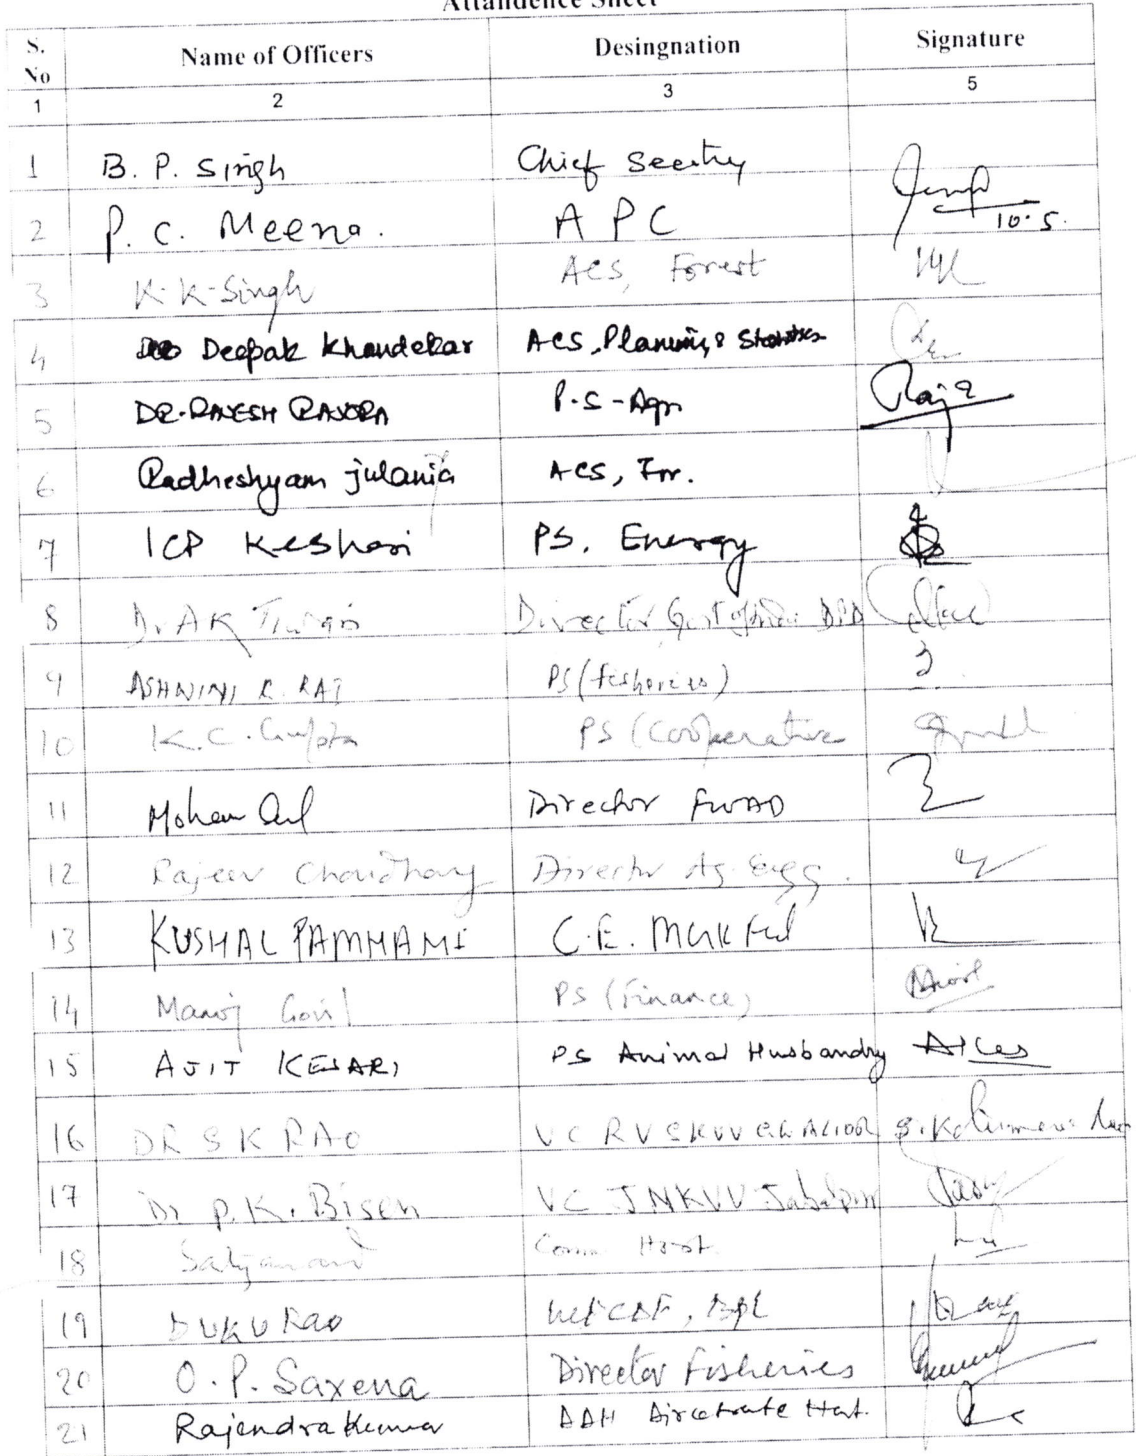 Attandence Sheet
S. No Name of Officers Desingnation Signature
1 2 3 5
1 B. P. Singh Chief Seertry
2 P. C. Meena. A P C 10.5.
3 K-K-Singh ACS, Forest
4 Deepak Khandekar ACS, Planning & Statistics
5 DR. RAJESH RAJORA P.S-Agri Raja
6 Radheshyam julania ACS,
7 ICP Keshari PS. Energy
8 Dr AK Tiwari Director Govt of India DPD
9 ASHWINI K. RAI PS (fisheries)
10 K.C. Gupta PS (Cooperative
11 Mohan Director FWAD
12 Rajeev Choudhary Director Ag. Engg.
13 KUSHAL C.E. Mark Fed
14 Manoj Govil PS (Finance)
15 AJIT KESARI PS Animal Husbandry
16 DR S K RAO VC RVSKVV GWALIOR
17 Dr P.K. Bisen VC JNKVV Jabalpur
18 Satyanand Comm Hort.
19 Rao , BPL
20 O.P. Saxena Director Fisheries
21 Rajendra Kumar DDH Directorate Hort.